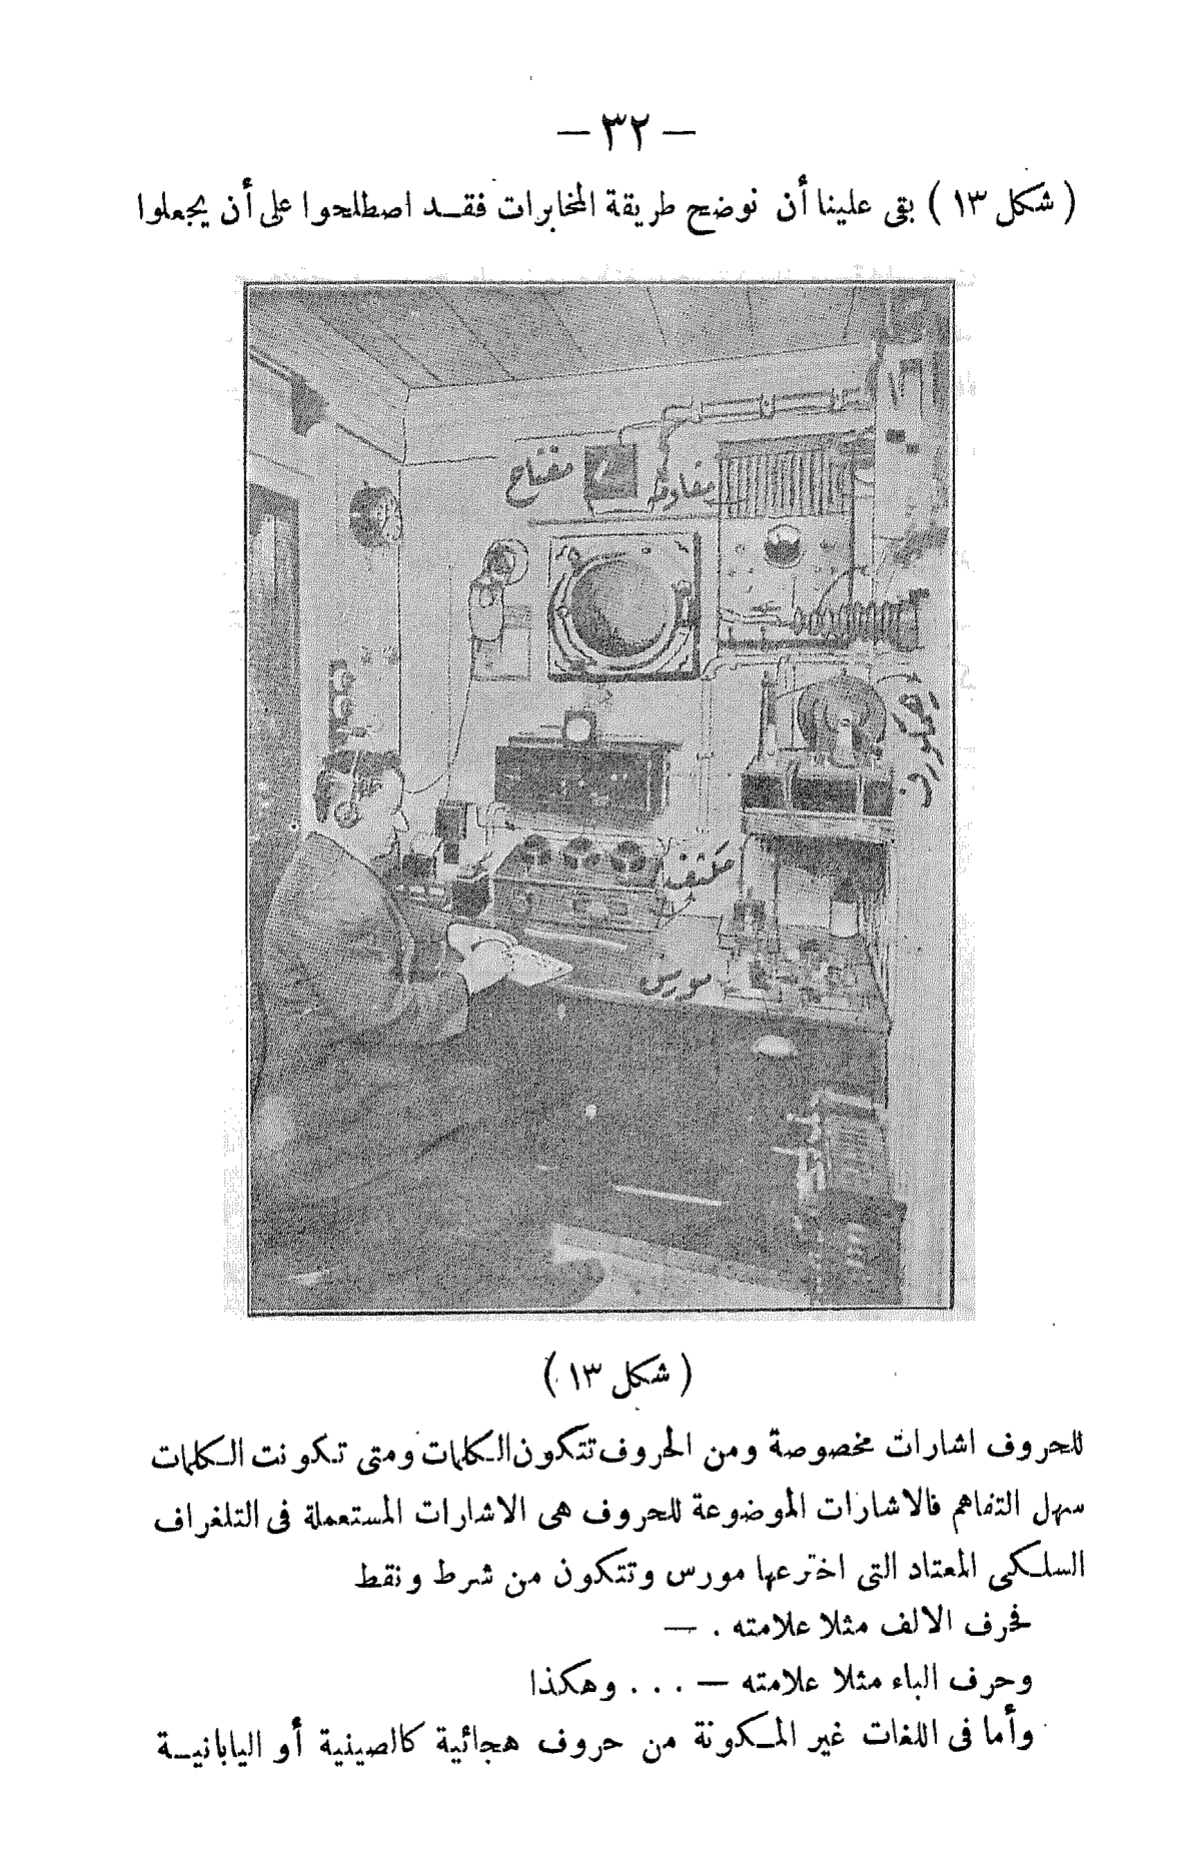 — ٣٢ —
( شكل ١٣ ) بقى علينا أن نوضح طريقة المخابرات فقد اصطلحوا على أن يجعلوا
مفتاح
مقاومة
ملتقف
مورس
( شكل ١٣ )
للحروف اشارات مخصوصة ومن الحروف تتكون الكلمات ومتى تكونت الكلمات
سهل التفاهم فالاشارات الموضوعة للحروف هى الاشارات المستعملة فى التلغراف
السلكى المعتاد التى اخترعها مورس وتتكون من شرط ونقط
فحرف الالف مثلا علامته . —
وحرف الباء مثلا علامته — . . . وهكذا
وأما فى اللغات غير المكونة من حروف هجائية كالصينية أو اليابانية